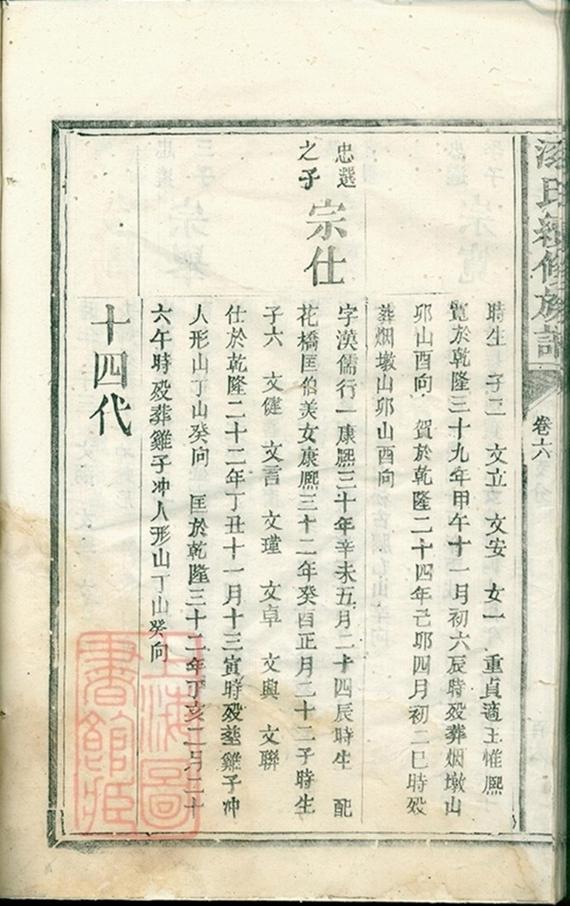 氏續修族譜
卷六
時生 子二 文立 文安 女一 重貞適王惟熈
覽於乾隆三十九年甲午十一月初六辰時殁葬烟墩山
邜山酉向 賀於乾隆二十四年己邜四月初二巳時殁
葬烟墩山邜山酉向
忠選
之子
宗仕
字漢儒行一康熈三十年辛未五月二十四辰時生 配
花橋匡伯美女康熈三十二年癸酉正月二十二子時生
子六 文健 文言 文瑾 文卓 文興 文聯
仕於乾隆二十二年丁丑十一月十三寅時殁塟雞子冲
人形山丁山癸向 匡於乾隆三十二年丁亥二月二十
六午時殁葬雞子冲人形山丁山癸向
十四代
上海圖
書館藏